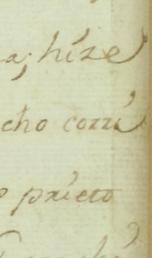 a; hize
cho corri
prieto